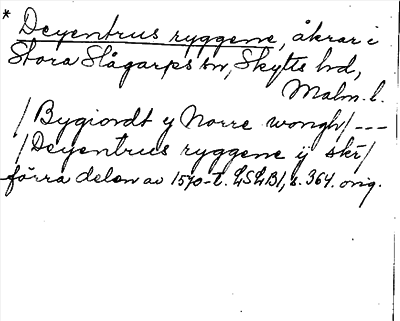 * Deyentrus ryggene, åkrar i
Stora Slågarps sn, Skytts hd,
Malm. l.
/Bygiordt y Norre wongh/---
/Deyentrus ryggene ij skr/
förra delen av 1570-t. LSLB1, s. 364. orig.